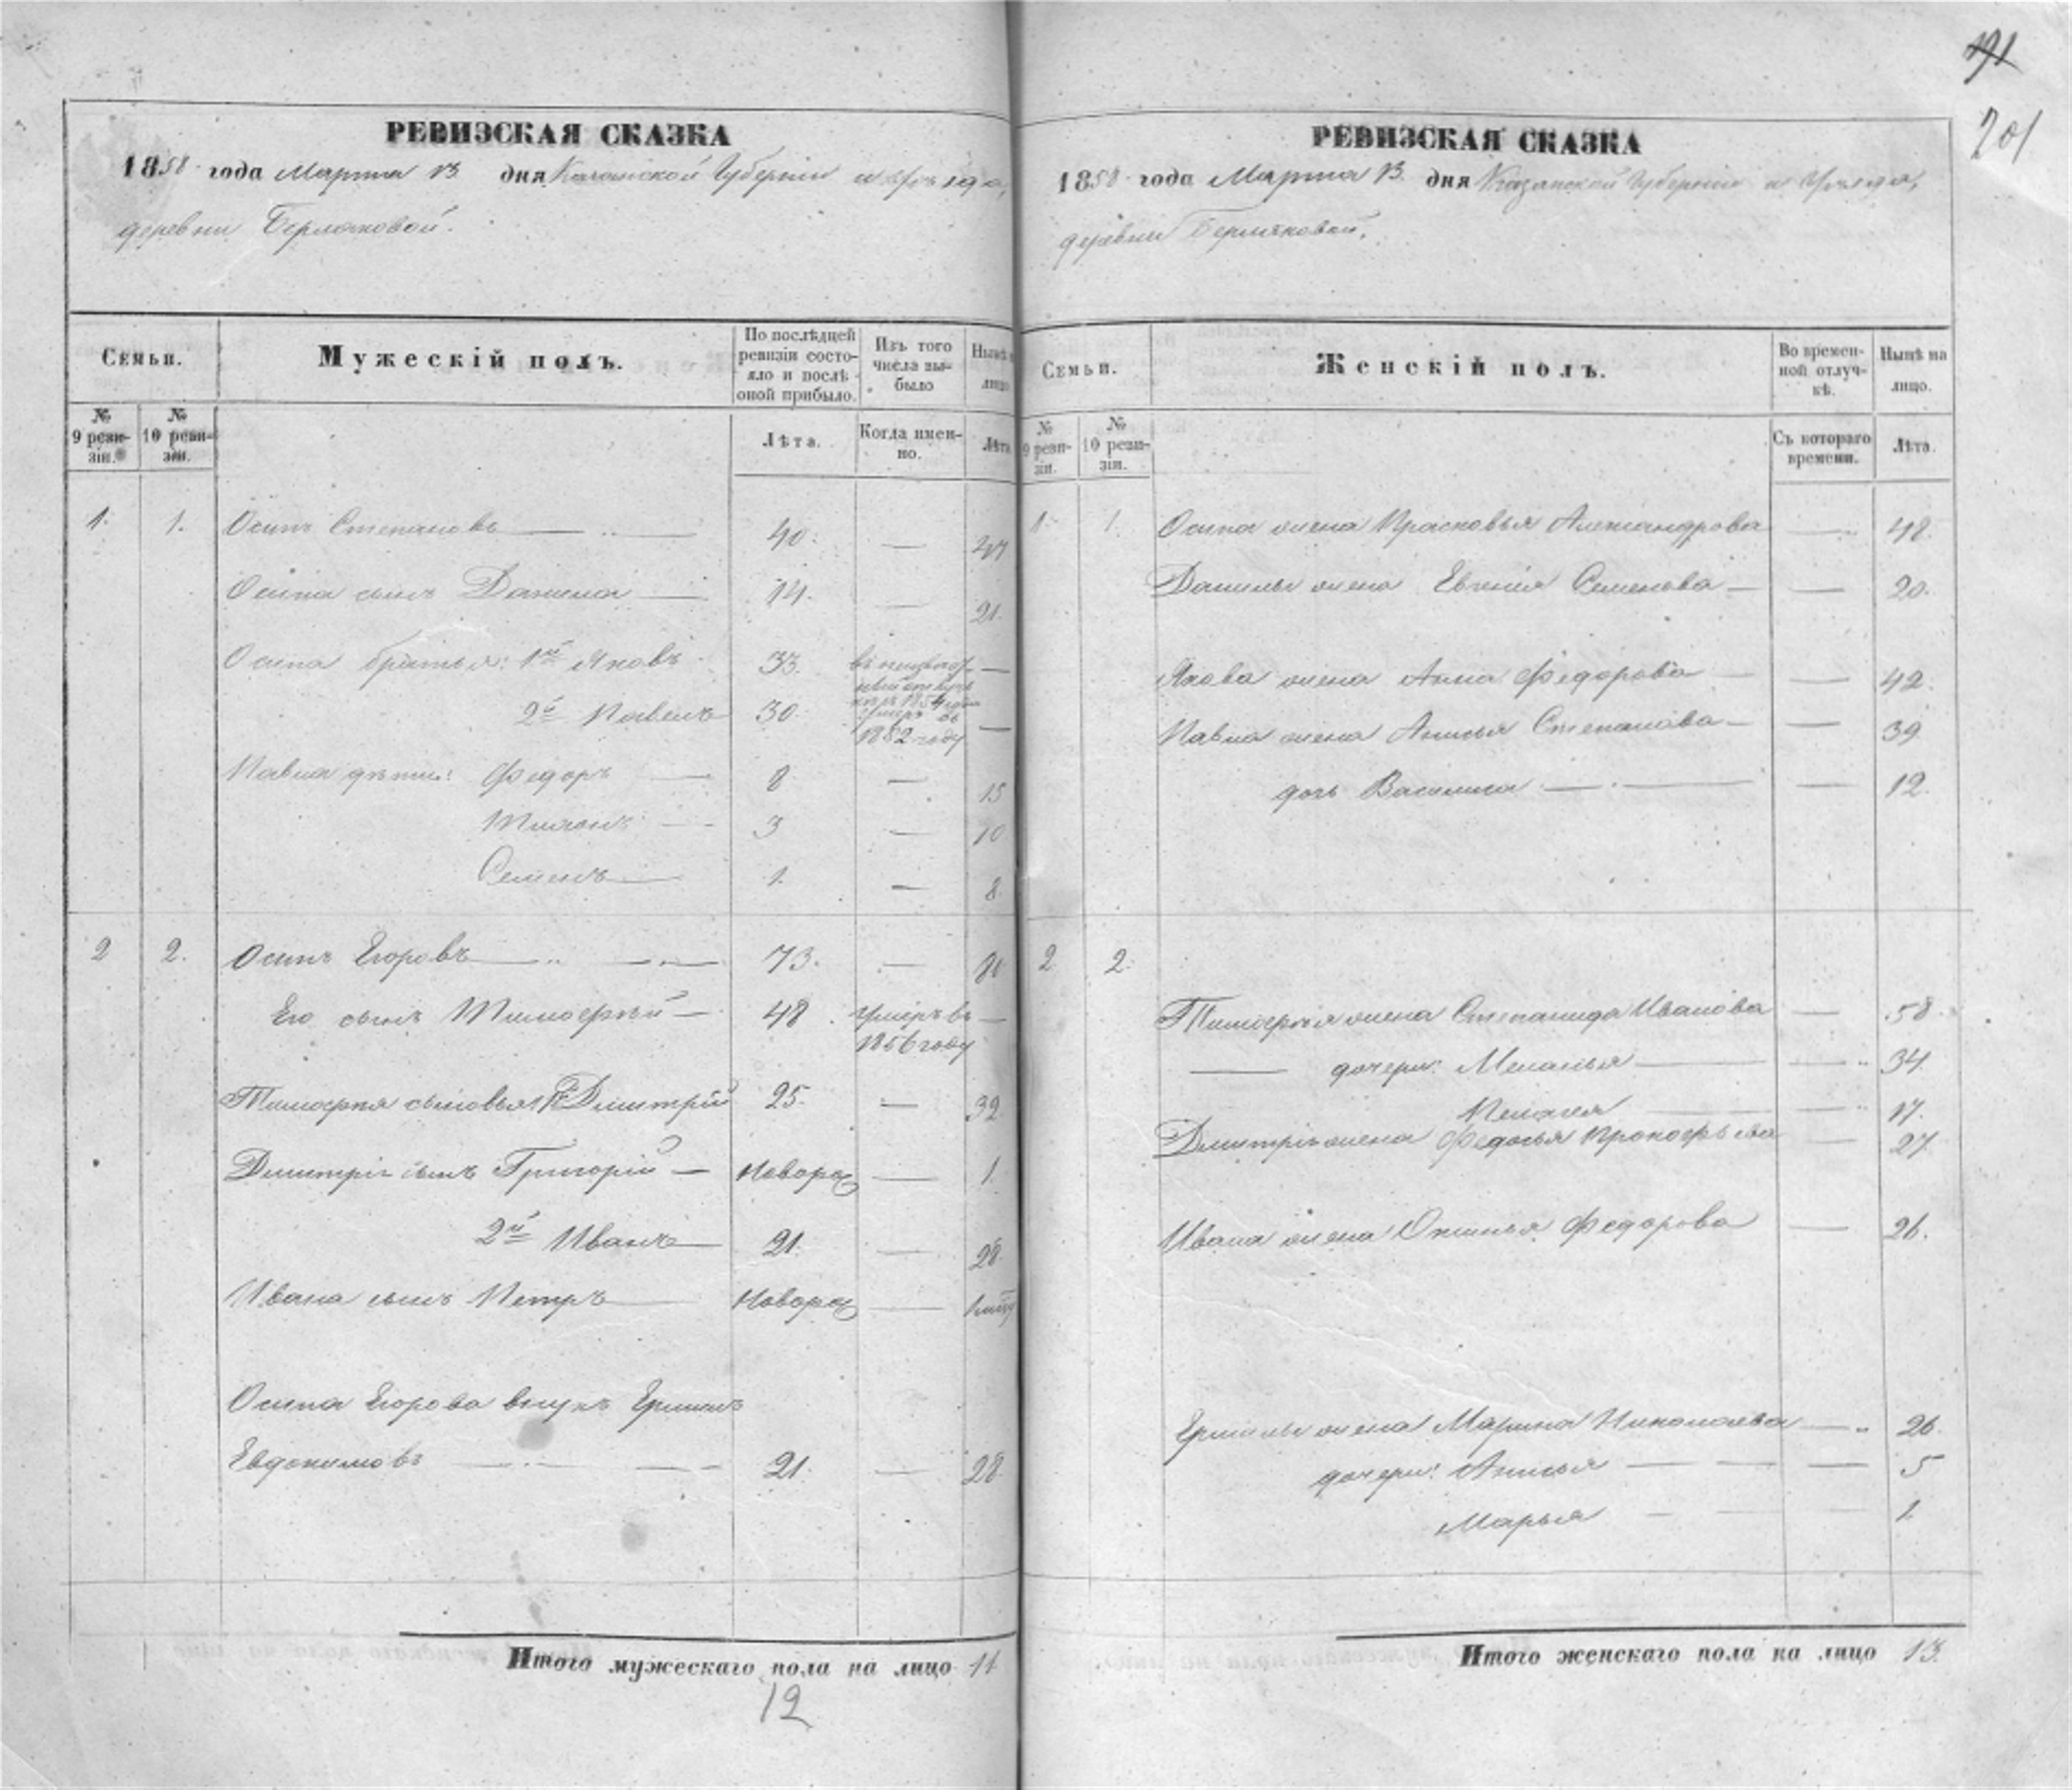 191
201
РЕВИЗСКАЯ СКАЗКА
1858 года Марта 13 дня Казанской Губернии и Уѣзда,
деревни Берляковой.
Семьи.
Мужескій полъ.
По послѣдней ревизіи состо-яло и послѣ оной прибыло.
Изъ того числа вы-было
Нынѣ на лицо
№ 9 реви-зіи.
№ 10 реви-зіи.
Лѣта.
Когда имен-но.
Лѣта
1. 1. Осипъ Степановъ 40. — 47
Осипа сынъ Данила 14. — 21.
Осипа братья: 1й Яковъ 33. —
2й Павелъ 30. умеръ въ 1852 году —
Павла дѣти: Федоръ 8 — 15
3 — 10
Семенъ 1. — 8
2 2. Осипъ Егоровъ 73. — 80
Его сынъ Тимофѣй 48. умеръ въ 1856 году —
Тимофея сыновья 1й Дмитрій 25. — 32
Дмитрія сынъ Григорій Новорож — 1
2й Иванъ 21. — 28
Ивана сынъ Петръ Новорож —
Осипа Егорова внукъ Ермилъ
Евдокимовъ 21. — 28
Итого мужескаго пола на лицо 11
12
РЕВИЗСКАЯ СКАЗКА
1858 года Марта 13 дня Казанской Губерніи и Уѣзда,
деревни Берляковой.
Семьи.
Женскій полъ.
Во времен-ной отлуч-кѣ.
Нынѣ на лицо.
№ 9 реви-зіи.
№ 10 реви-зіи.
Съ котораго времени.
Лѣта.
1 1. Осипа жена Прасковья Александрова — 48
Данилы жена Евгенія Семенова — 20.
Якова жена Анна Федорова — 42
Павла жена Анисья Степанова — 39
дочь Василиса — 12
2 2. Тимофея жена Степанида Иванова — 58
дочери: Меланья — 34
Пелагея — 17.
Дмитрія жена Федосья Прокофьева — 27
Ивана жена Ксинья Федорова — 26.
Ермилы жена Марина Николаева — 26
дочери: Анисья — 5
Марья — 1
Итого женскаго пола на лицо 13.